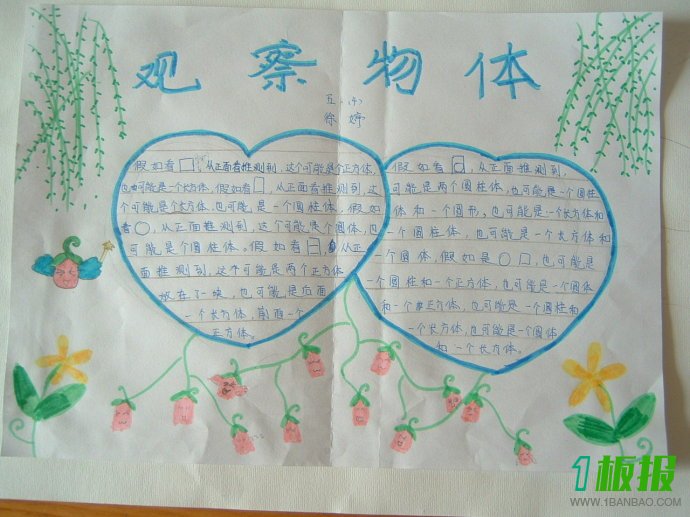 观察物体
五、(4)
徐婷
假如看□，从正面看推测到，这个可能是个正方体，
也可能是一个长方体，假如看□，从正面看推测到，这
个可能是个长方体，也可能是一个圆柱体，假如
看○，从正面推测到，这个可能是个圆体，也
可能是个圆柱体。假如看日，从正
面推测到，这个可能是两个正方体
放在了一块，也可能是后面
一个长方体，前面一个
正方体。
假如看，从正面推测到，
可能是两个圆柱体，也可能是一个圆柱
体和一个圆形。也可能是一个长方体和
一个圆柱体，也可能是一个长方体和
一个圆体，假如是○□，也可能是
一个圆柱和一个正方体，也可能是一个圆体
和一个正方体，也可能是一个圆柱和
一个长方体，也可能是一个圆体
和一个长方体。
1板报
WWW.1BANBAO.COM